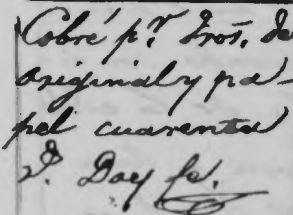 Cobré pr. Dros. de
original y pa-
pel cuarenta
ps. Doy fe.